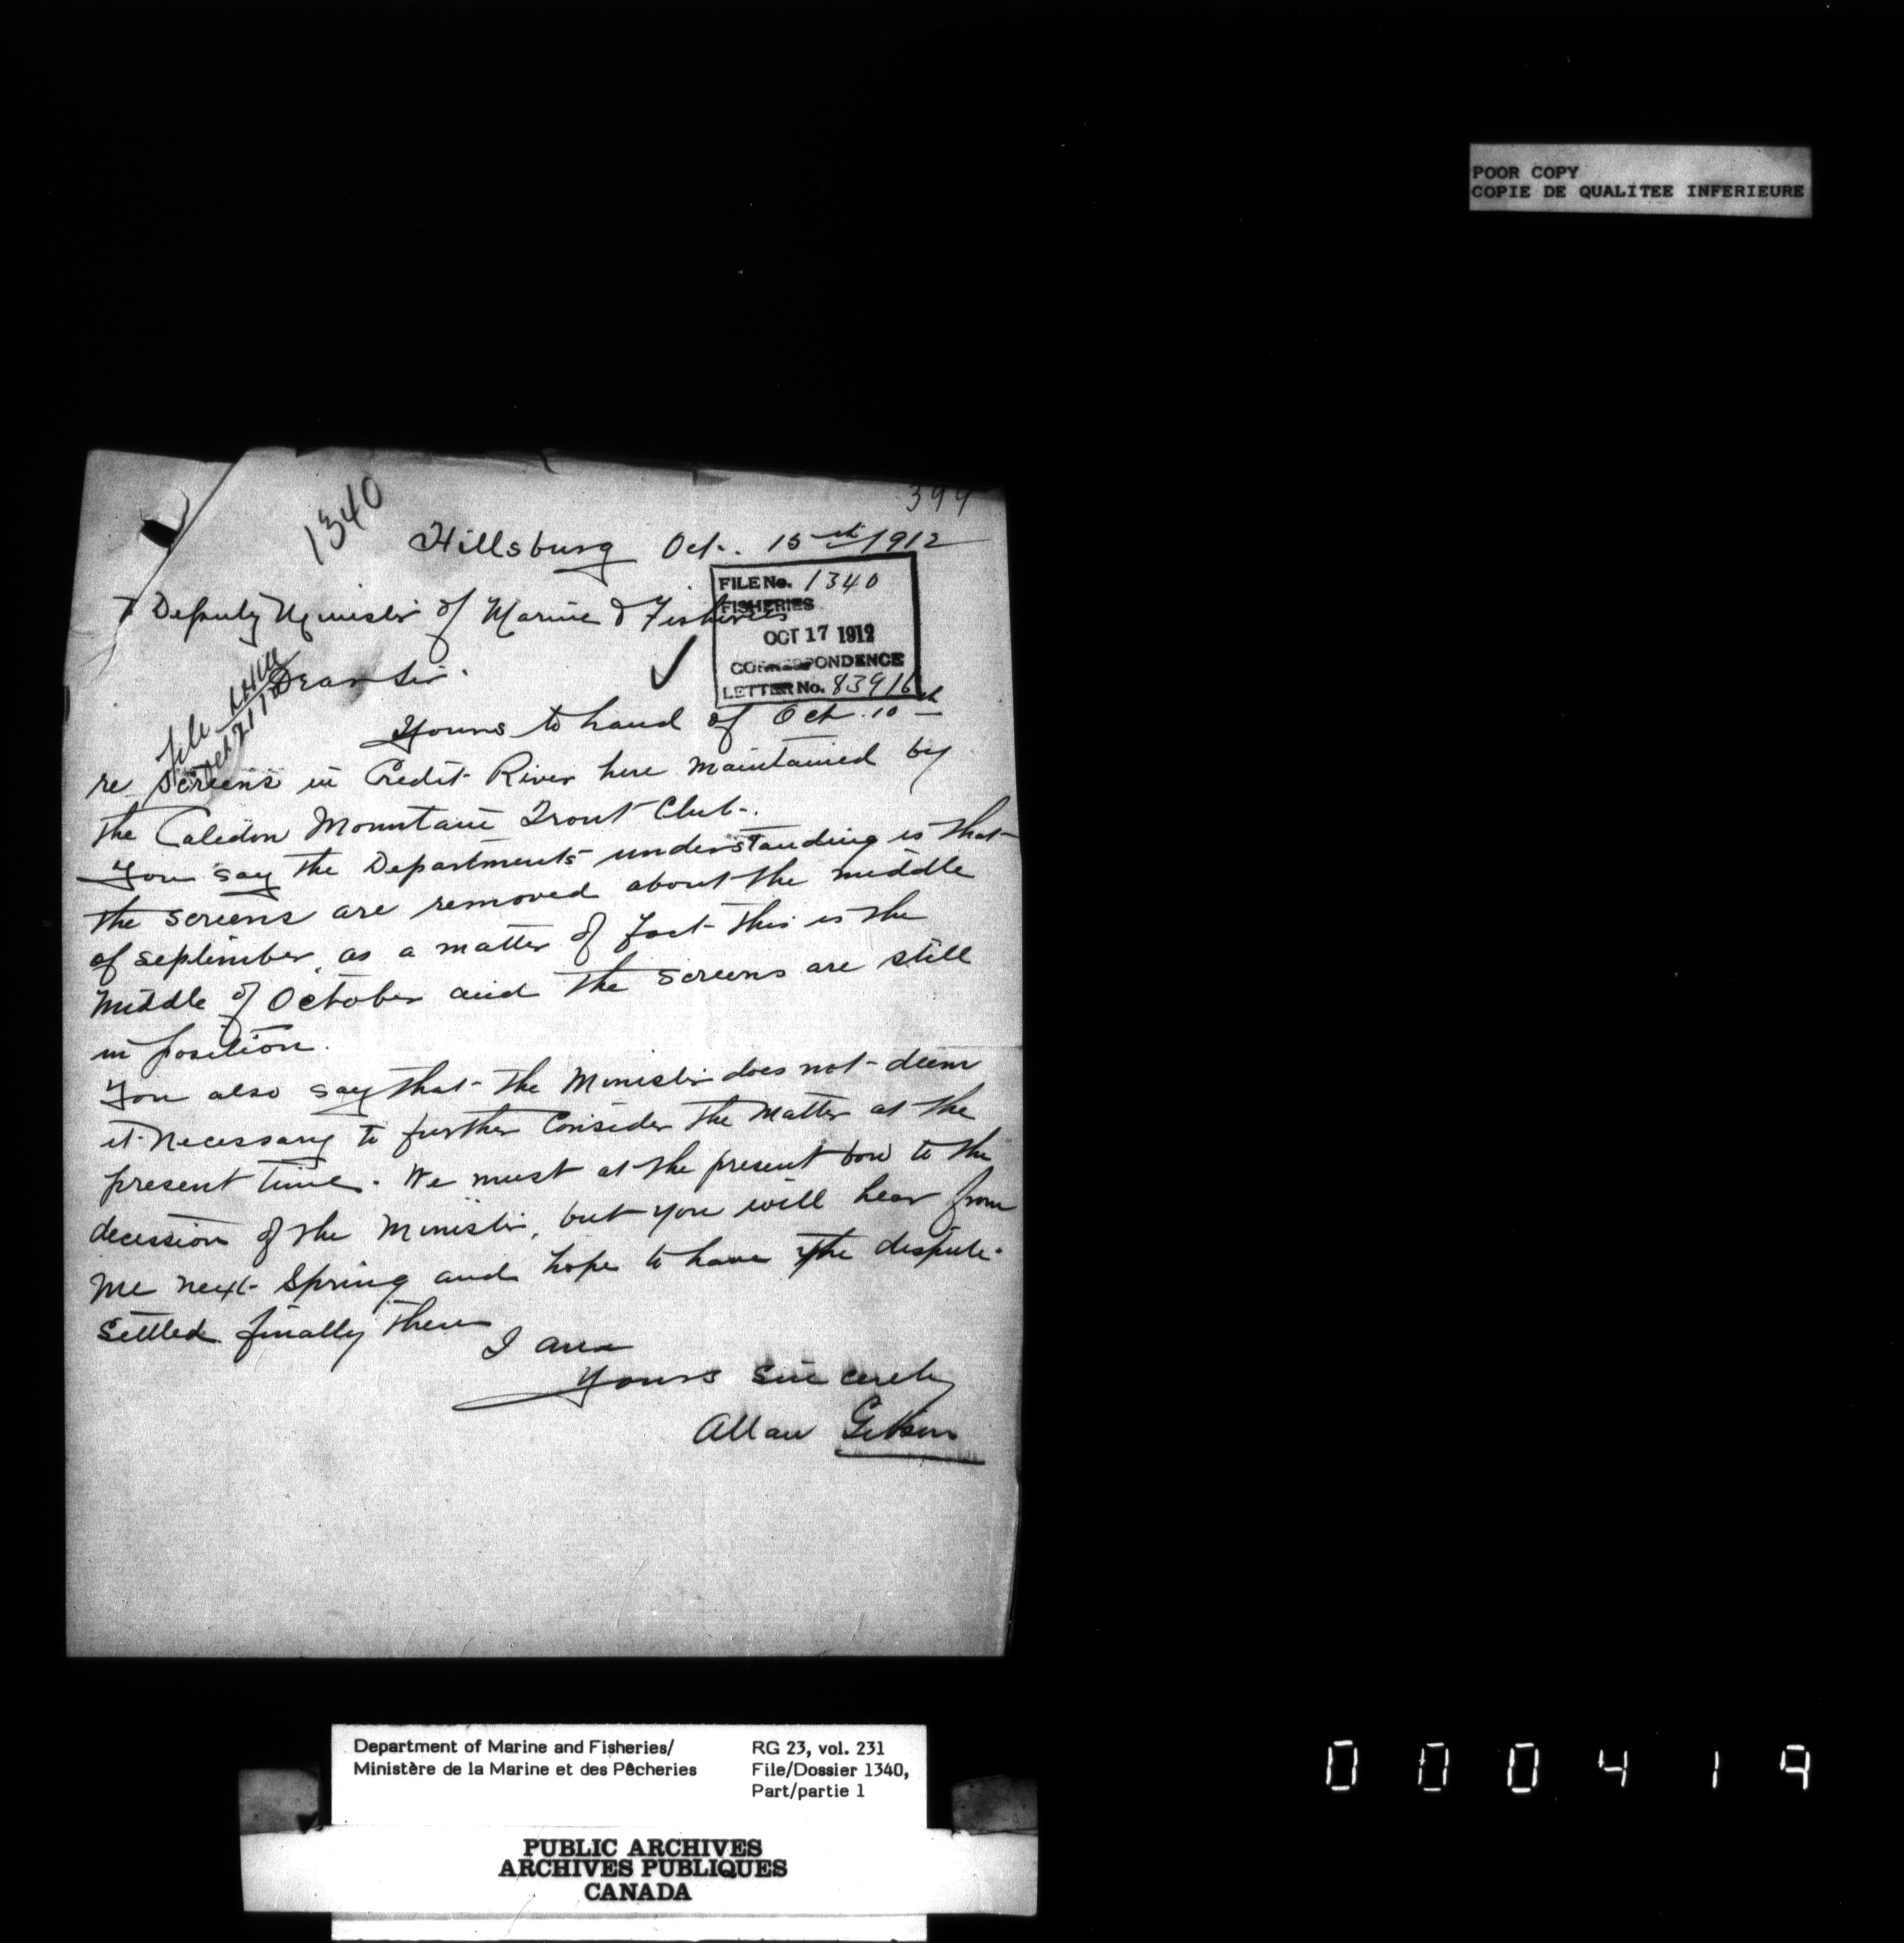 POOR COPY
COPIE DE QUALITEE INFERIEURE
399
1340
Hillsburg Oct. 15th/1912
FILE No. 1340
FISHERIES
OCT 17 1912
CORRESPONDENCE
LETTER No. 83916
Deputy Minister of Marine & Fisheries
Dear Sir.
file
Yours to hand of Oct. 10th
re Screens in Credit River here maintained by
the Caledon Mountain Trout Club.
You say the Departments understanding is that
the screens are removed about the middle
of september, as a matter of fact this is the
middle of October and the screens are still
in position.
You also say that the Minister does not deem
it necessary to further Consider the matter at the
present time. We must at the present bow to the
decission of the Minister, but you will hear from
me next Spring and hope to have the dispute
settled finally then
I am
Yours Sincerely
Allan Gibson
Department of Marine and Fisheries/
Ministère de la Marine et des Pêcheries
RG 23, vol. 231
File/Dossier 1340,
Part/partie 1
PUBLIC ARCHIVES
ARCHIVES PUBLIQUES
CANADA
000419